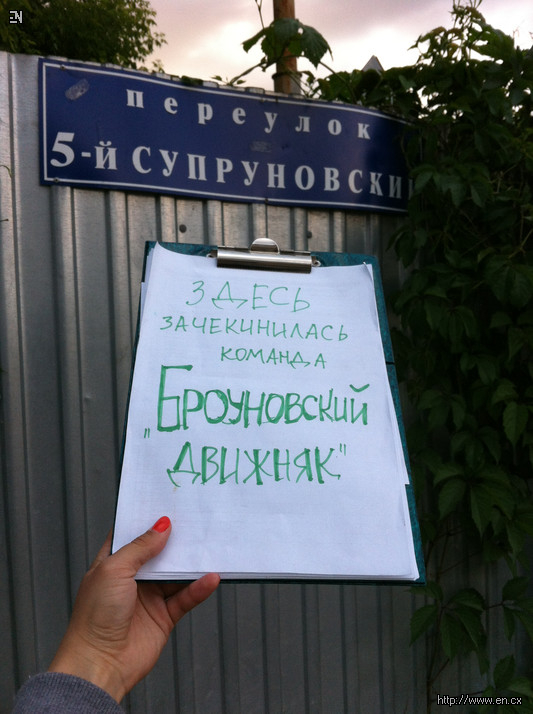 EN
переулок
5-й СУПРУНОВСКИЙ
ЗДЕСЬ
ЗАЧЕКИНИЛАСЬ
КОМАНДА
„БРОУНОВСКИЙ
ДВИЖНЯК"
http://www.en.cx